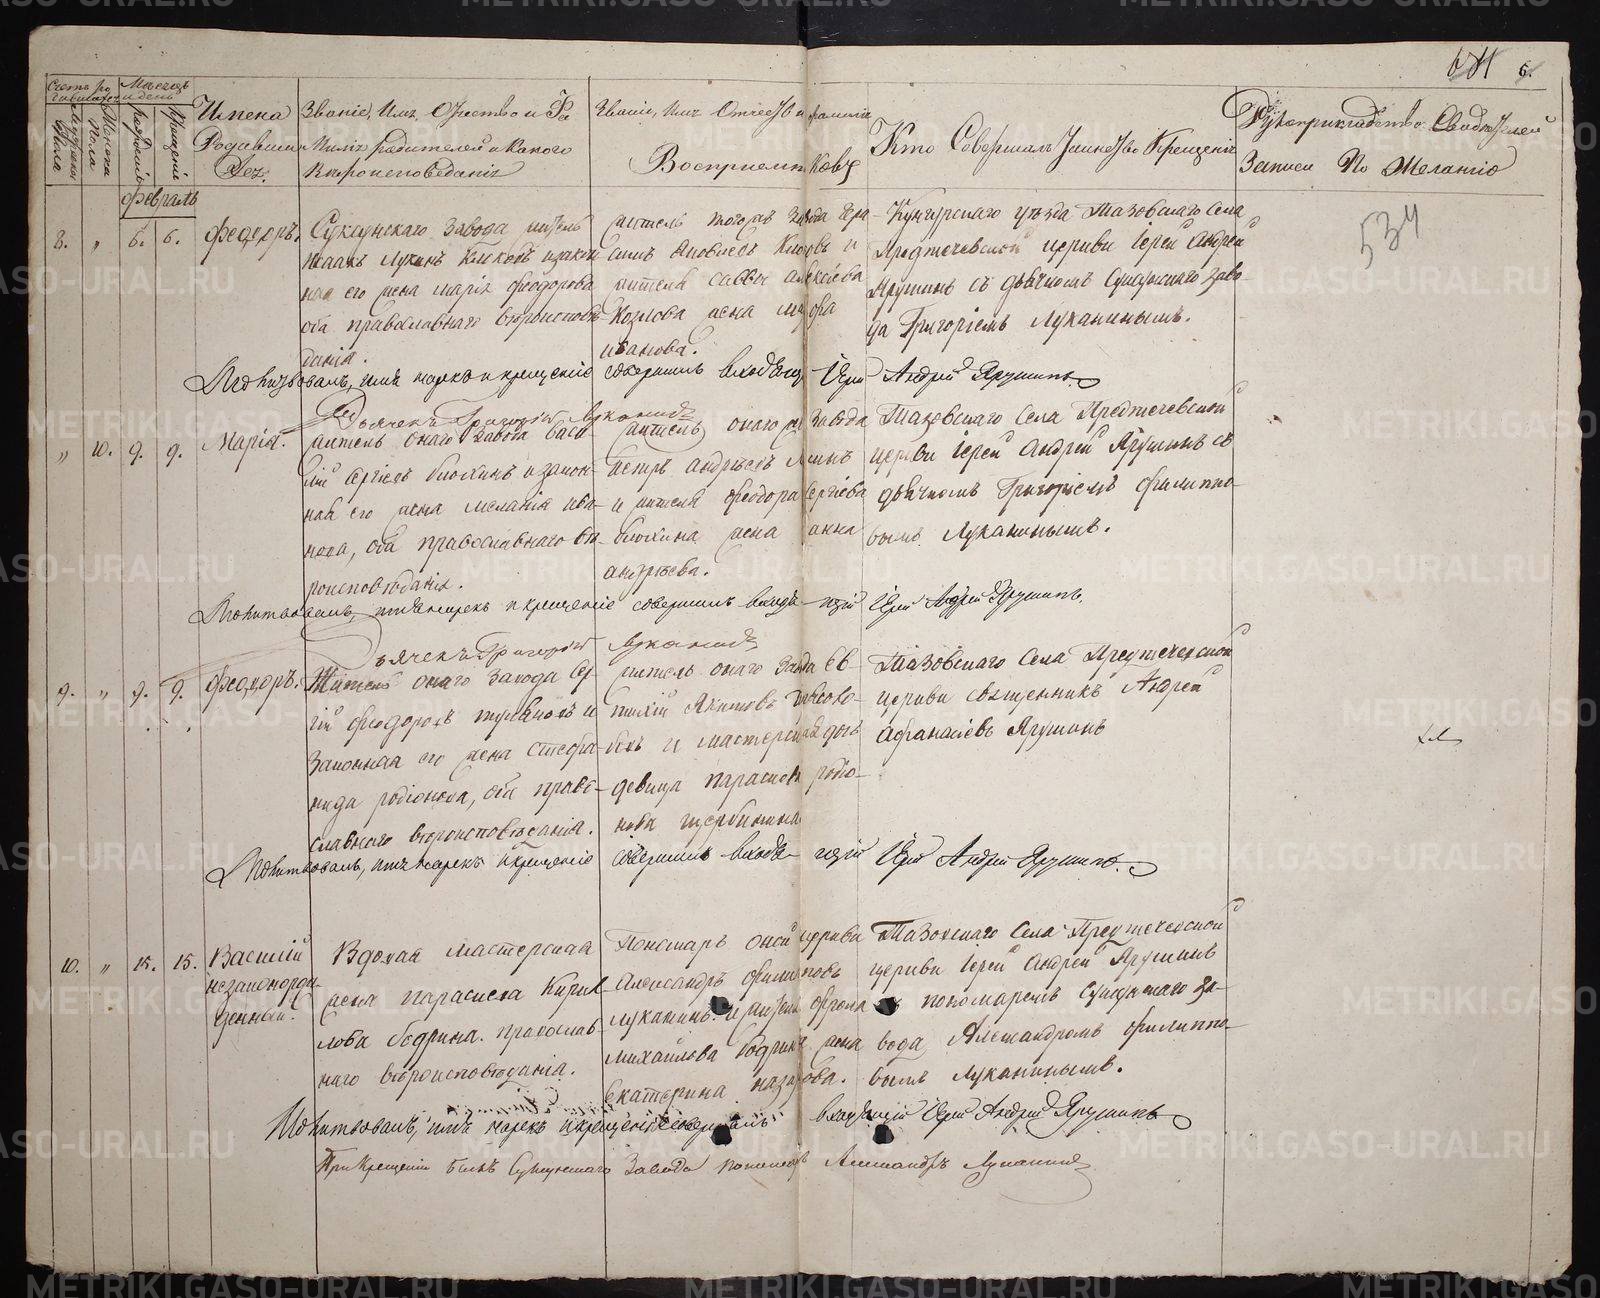 681 6.
Счетъ ро
дившихся
Мѣсяцъ
и день
Мужеска
пола
Женска
пола
рожденія
крещенія
Имена
Родивши
хся.
Званіе, Имя, Отчество и Фа
милія родителей и какого
вѣроисповѣданія
Званіе, Имя Отчество и фамилія
Воспріемниковъ
Кто Совершалъ Таинство Крещенія
Рукоприкладство Свидѣтелей
Записи По Желанію
февраль
534
8. „ 6. 6. Феодоръ.
Суксунскаго завода житель
Исаакъ Лукинъ и закон
ная его жена Марія Феодорова
оба православнаго вѣроисповѣ-
данія.
житель тогожъ завода Гера-
симъ и
жителя Саввы Алексѣева
Козлова жена
Иванова.
Кунгурскаго уѣзда Тазовскаго села
Предтечевской церкви Іерей Андрей
Ярушинъ съ дьячкомъ Суксунскаго заво-
да Григоріемъ Луканинымъ.
Молитвовалъ, имя нарекъ и крещеніе совершилъ входящ Іерей Андрей Ярушинъ
Дьячекъ Григорій Луканинъ
„ 10. 9. 9. Марія.
житель онаго завода Васи-
лій Сергѣевъ Блохинъ и закон-
ная его жена Меланія Ива-
нова, оба православнаго вѣ-
роисповѣданія.
житель онаго же завода
Петръ Андрѣевъ
и жителя Феодора Сергѣева
Блохина жена Анна
Андрѣева.
Тазовскаго села Предтечевской
церкви Іерей Андрей Ярушинъ съ
дьячкомъ Григоріемъ Филиппо-
вымъ Луканинымъ.
Молитвовалъ, имя нарекъ и крещеніе совершилъ входя-щій Іерей Андрей Ярушинъ.
Дьячекъ Григорій Луканинъ
9. „ 9. 9. Феодоръ.
Житель онаго завода Сер
гій Феодоровъ и
законная его жена Стефа-
нида Родіонова, оба право-
славнаго вѣроисповѣданія.
житель онаго завода Ев-
тихій Якимовъ
и мастерская дочь
девица Параскева Родіо-
нова Щербинина
Тазовскаго села Предтечевской
церкви священникъ Андрей
Афанасіевъ Ярушинъ
Молитвовалъ, имя нарекъ и крещеніе совершилъ входя-щій Іерей Андрей Ярушинъ.
10. „ 15. 15. Василій
незаконорож
денный.
Вдовая мастерская
жена Параскева Кирил-
лова Бодрина. православ-
наго вѣроисповѣданія.
Пономарь оной церкви
Александръ Филиповъ
Луканинъ. и жителя Фрола
Михайлова Бодрина жена
Екатерина Назарова.
Тазовскаго села Предтечевской
церкви Іерей Андрей Ярушинъ
съ пономаремъ Суксунскаго за-
вода, Александромъ Филиппо-
вымъ Луканинымъ.
Молитвовалъ, имя нарекъ и крещеніе совершалъ входящій Іерей Андрей Ярушинъ
При Крещеніи былъ Суксунскаго Завода пономарь Александръ Луканинъ
METRIKI.GASO-URAL.RU